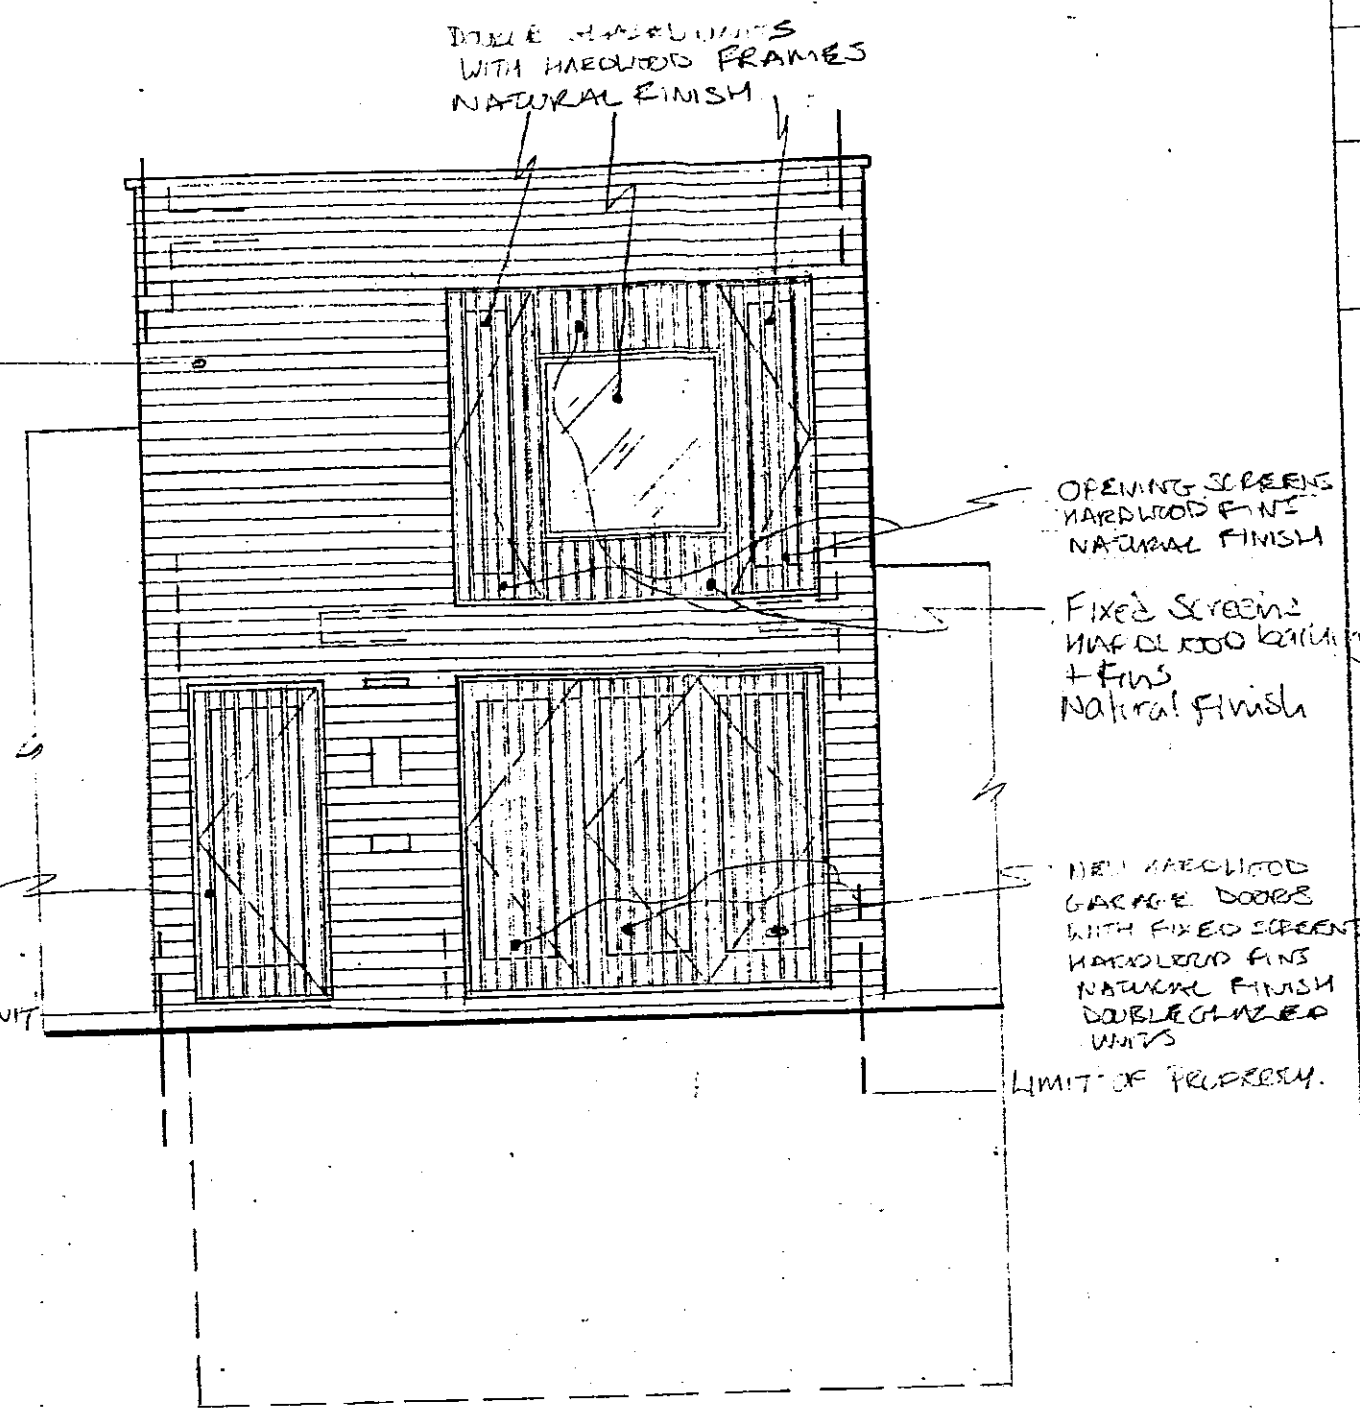 DOUBLE GLAZED UNITS
WITH HARDWOOD FRAMES
NATURAL FINISH
OPENING SCREENS
HARDWOOD FINS
NATURAL FINISH
Fixed Screens
HARDWOOD
+ Fins
Natural Finish
NEW HARDWOOD
GARAGE DOORS
WITH FIXED SCREENS
HARDWOOD FINS
NATURAL FINISH
DOUBLE GLAZED
UNITS
LIMIT OF PROPERTY.